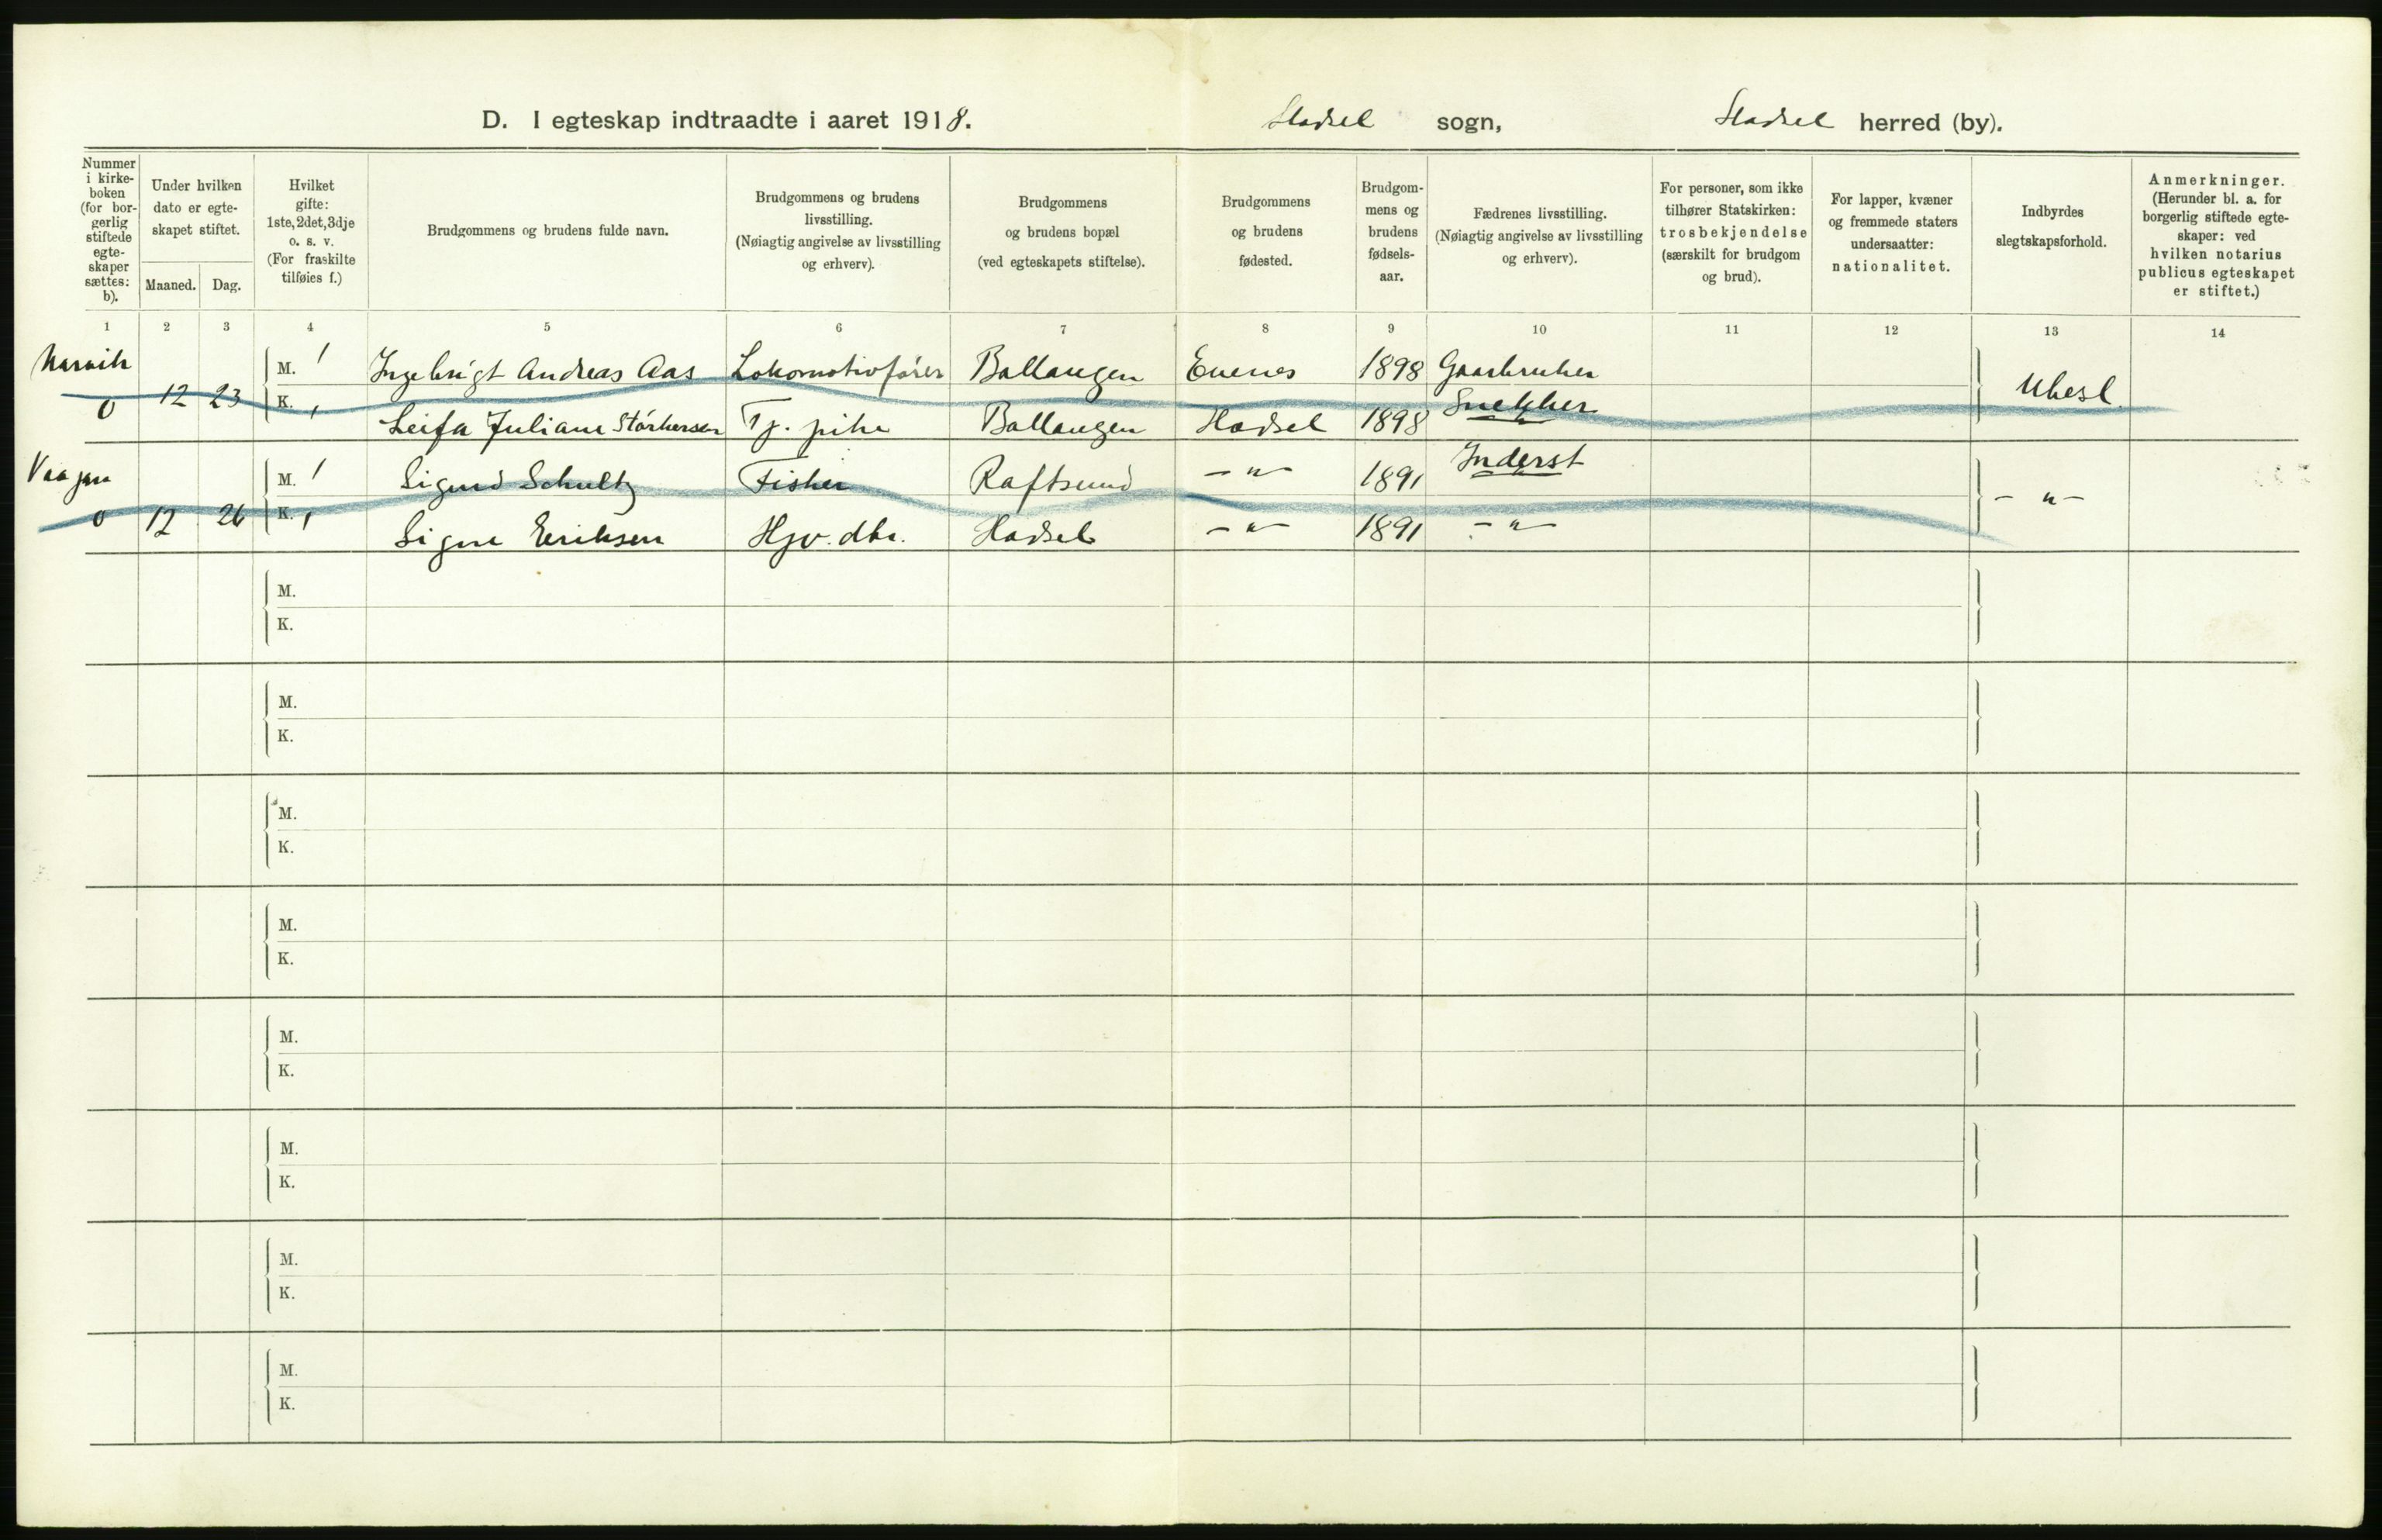 D. I egteskap indtraadte i aaret 1918. Hadsel sogn, Hadsel herred (by).
Nummer i kirke- boken (for bor- gerlig stiftede egte- skaper sættes: b).
Under hvilken dato er egte- skapet stiftet.
Maaned. Dag.
Hvilket gifte: 1ste, 2det, 3dje o. s. v. (For fraskilte tilføies f.)
Brudgommens og brudens fulde navn.
Brudgommens og brudens livsstilling. (Nøiagtig angivelse av livsstilling og erhverv).
Brudgommens og brudens bopæl (ved egteskapets stiftelse).
Brudgommens og brudens fødested.
Brudgom- mens og brudens fødsels- aar.
Fædrenes livsstilling. (Nøiagtig angivelse av livsstilling og erhverv).
For personer, som ikke tilhører Statskirken: trosbekjendelse (særskilt for brudgom og brud).
For lapper, kvæner og fremmede staters undersaatter: nationalitet.
Indbyrdes slegtskapsforhold.
Anmerkninger. (Herunder bl. a. for borgerlig stiftede egte- skaper: ved hvilken notarius publicus egteskapet er stiftet.)
1 2 3 4 5 6 7 8 9 10 11 12 13 14
Narvik M. 1 Ingebrigt Andreas Aas Lokomotivfører Ballangen Evenes 1898 Gaarbruker
0 12 23 K. 1 Leifa Juliane Størkersen Tj. pike Ballangen Hadsel 1898 Snekker Ubesl.
Vaagan M. 1 Sigurd Schultz Fisker Raftsund — " — 1891 Inderst
0 12 26 K. 1 Signe Eriksen Hjv. dtr. Hadsel — " — 1891 — " — — " —
M.
K.
M.
K.
M.
K.
M.
K.
M.
K.
M.
K.
M.
K.
M.
K.